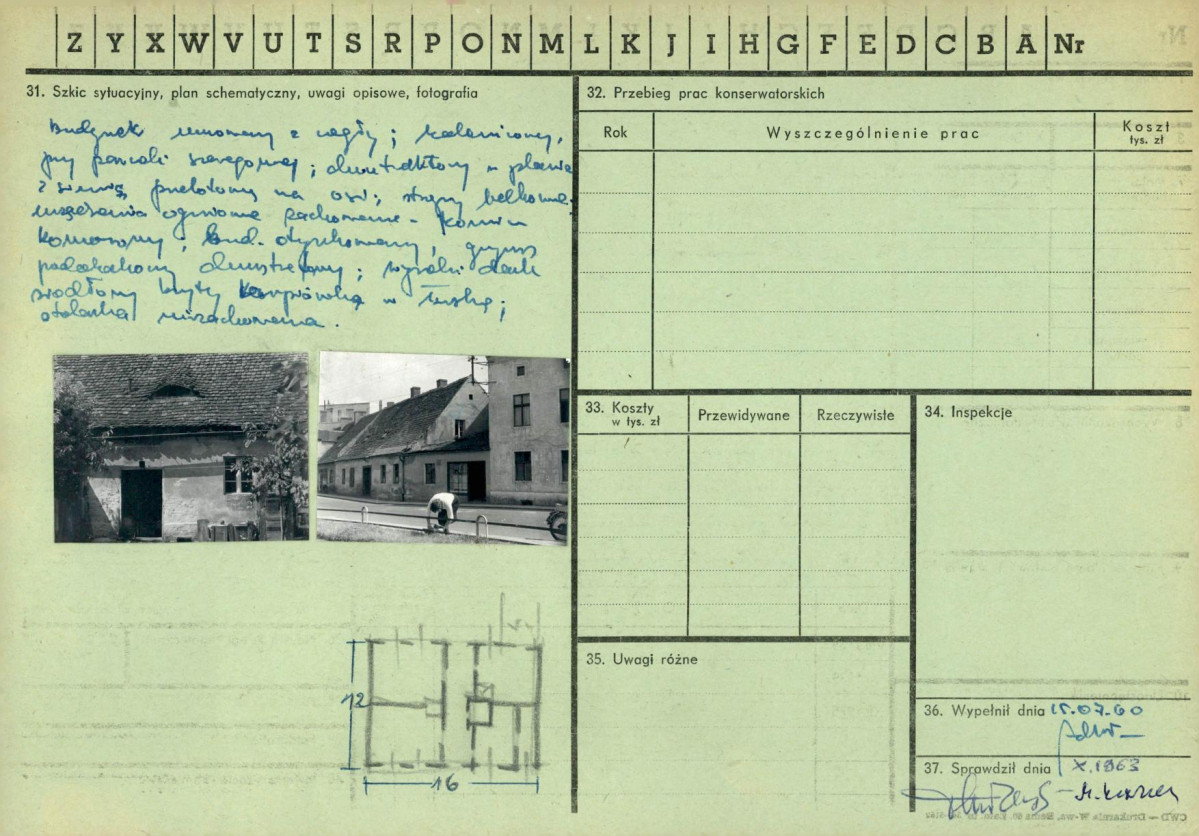 Z Y X W V U T S R P O N M L K J I H G F E D C B A Nr
31. Szkic sytuacyjny, plan schematyczny, uwagi opisowe, fotografia
Budynek murowany z cegły; kalenicowy,
przy parceli szeregowej; dwutraktowy w planie
z sienią przelotową na osi; stropy belkowe
ogniowe zachowane - komin
komorowy; bud. otynkowany, gzyms
podokapowy; wysoki dach
siodłowy kryty karpiówką w łuskę;
stolarka niezachowana.
12
16
32. Przebieg prac konserwatorskich
Rok
Wyszczególnienie prac
Koszt
tys. zł
33. Koszty
w tys. zł
Przewidywane
Rzeczywiste
34. Inspekcje
35. Uwagi różne
36. Wypełnił dnia 15.07.60
37. Sprawdził dnia X.1963